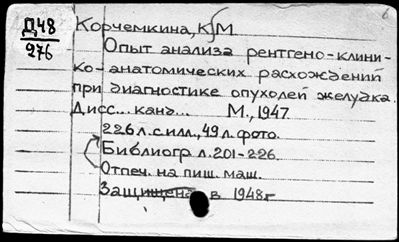 Д48
276
Корчемкина, К. М.
Опыт анализа рентгено-клини-
ко-анатомических расхождений
при диагностике опухолей желудка.
Дисс... канд... М., 1947
226 л. с илл., 49 л. фото.
Библиогр л. 201-226.
Отпеч. на пиш. маш.
Защищена в 1948г